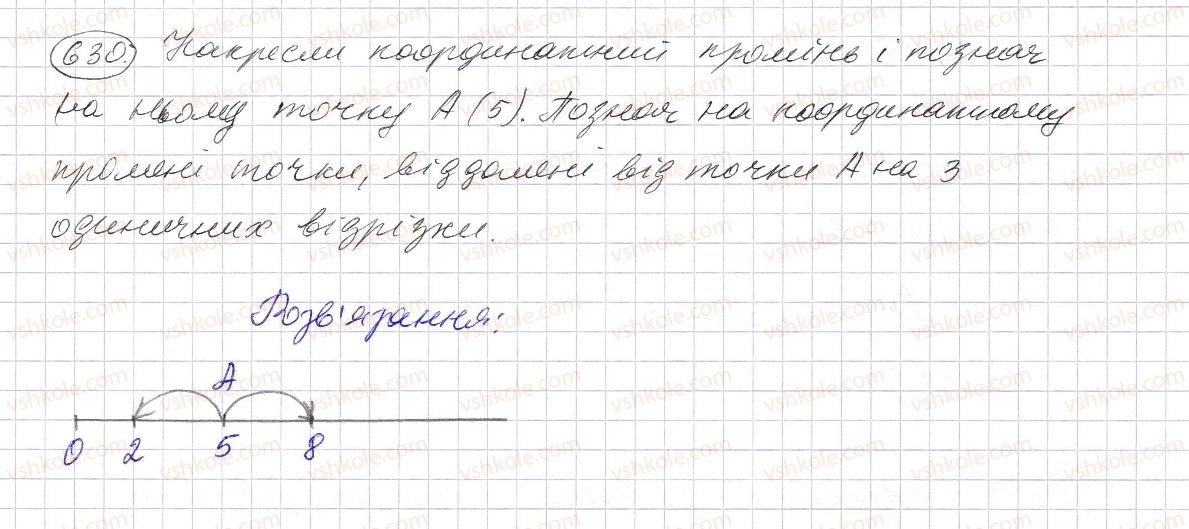 630. Накресли координатний промінь і познач
на ньому точку А (5). Познач на координатному
промені точки, віддалені від точки А на 3
одиничних відрізки.
Розв'язання:
А
0 2 5 8